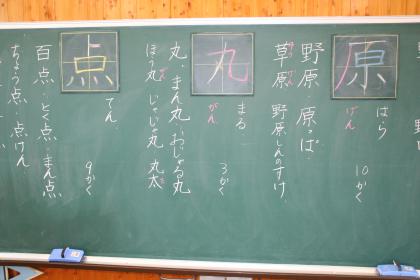 原
はら
げん
10かく
野原 原っぱ
草原 野原しんのすけ
丸
まる
がん
3かく
丸、まん丸、おじゃる丸
ほう丸 じゃじゃ丸 丸太
点
てん
9かく
百点、とく点、まん点
ちょう点、点けん